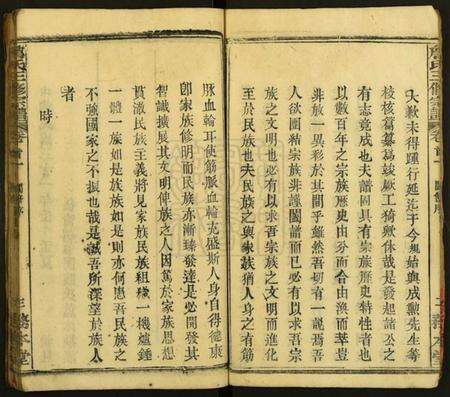 大歉未得運行延迄于今規始與成勲先生等
校核篇纂爲竣厥工猗歟休哉是發起諸公之
有志竟成也夫譜固具有宗族歷史特性者也
以數百年之宗族歷史由分而合由渙而萃豈
非族一異彩於其間乎雖然吾切有一說焉吾
人欲團結宗族非謹闔譜而已必有以求吾宗
族之文明也必有以求吾宗族之文明而進化
至於民族也夫民族之與家族猶人身之有筋
脉血輪耳使筋脈血輪充盛斯人身自得健康
卽家族修明而民族亦漸臻發達是必開發其
智識擴展其文明俾族之人因篤於家族思想
貫澈民族主義將見家族民族組織一機爐錘
一體一族如是族族皆如是則亦何患吾民族之
不強國家之不振也哉是誠吾所深望於族人
者
時
氏三修宗譜
卷首
三務本堂